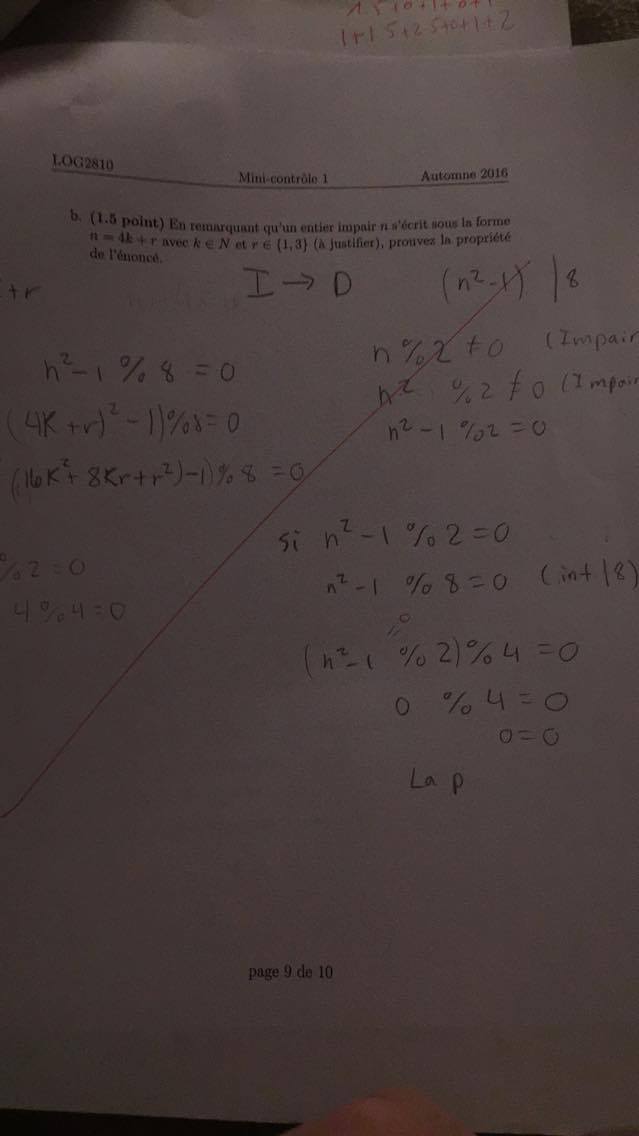 1+1 5+2 5+0+1+2
LOG2810
Mini-contrôle 1
Automne 2016
b. (1.5 point) En remarquant qu'un entier impair n s'écrit sous la forme
n = 4k + r avec k ∈ N et r ∈ {1, 3} (à justifier), prouvez la propriété
de l'énoncé.
+r
I → D
(n²-1) | 8
n²-1 % 8 = 0
(4K + r)² - 1)%8=0
(16K²+ 8Kr+r²)-1)% 8 = 0
%2=0
4%4=0
n%2 ≠ 0 (Impair
n² %2 ≠ 0 (Impair
n²-1 %2=0
si n²-1 %2=0
n²-1 %8=0 (int|8)
=0
(n²-1 %2)%4 =0
0 %4=0
0=0
La p
page 9 de 10